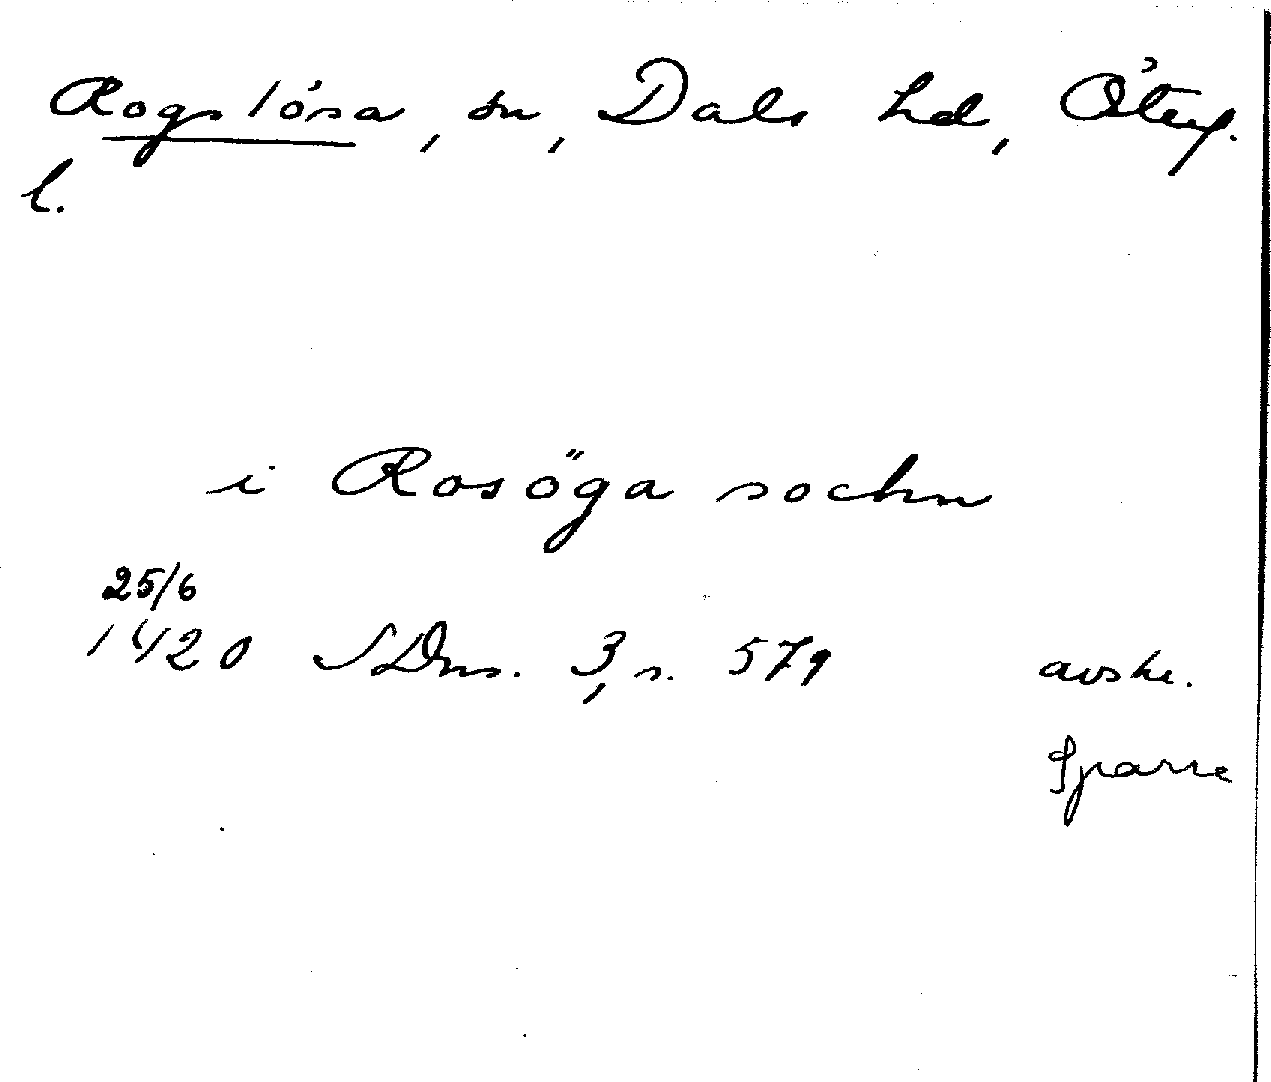 Rogslösa, sn, Dals hd, Östg.
l.
i Rosöga sochn
25/6
1420 SDns. 3, s. 579 avskr.
Sparre